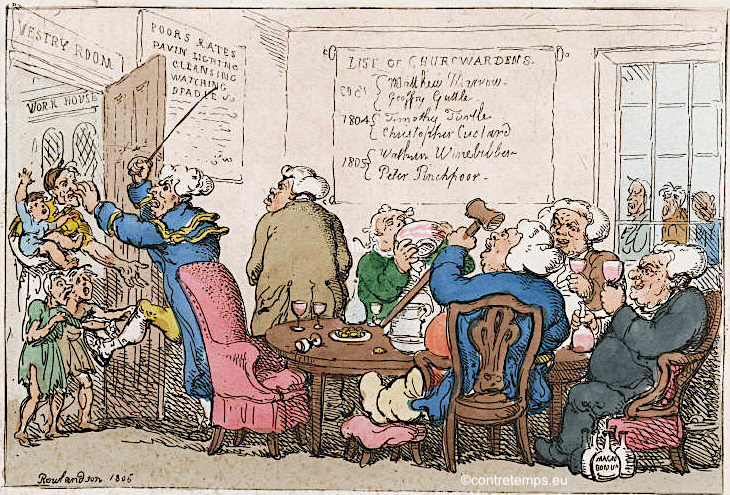 VESTRY ROOM
WORK HOUSE
POORS RATES
PAVIN LIGHTING
CLEANSING
WATCHING
LIST OF CHURCWARDENS.
Matthew Marrow
Geoffry Guttle
1804 Timothy Turtle
Christopher Custard
1805
Peter Pinchpoor
MAGN
BONUM
Rowlandson 1806
©contretemps.eu